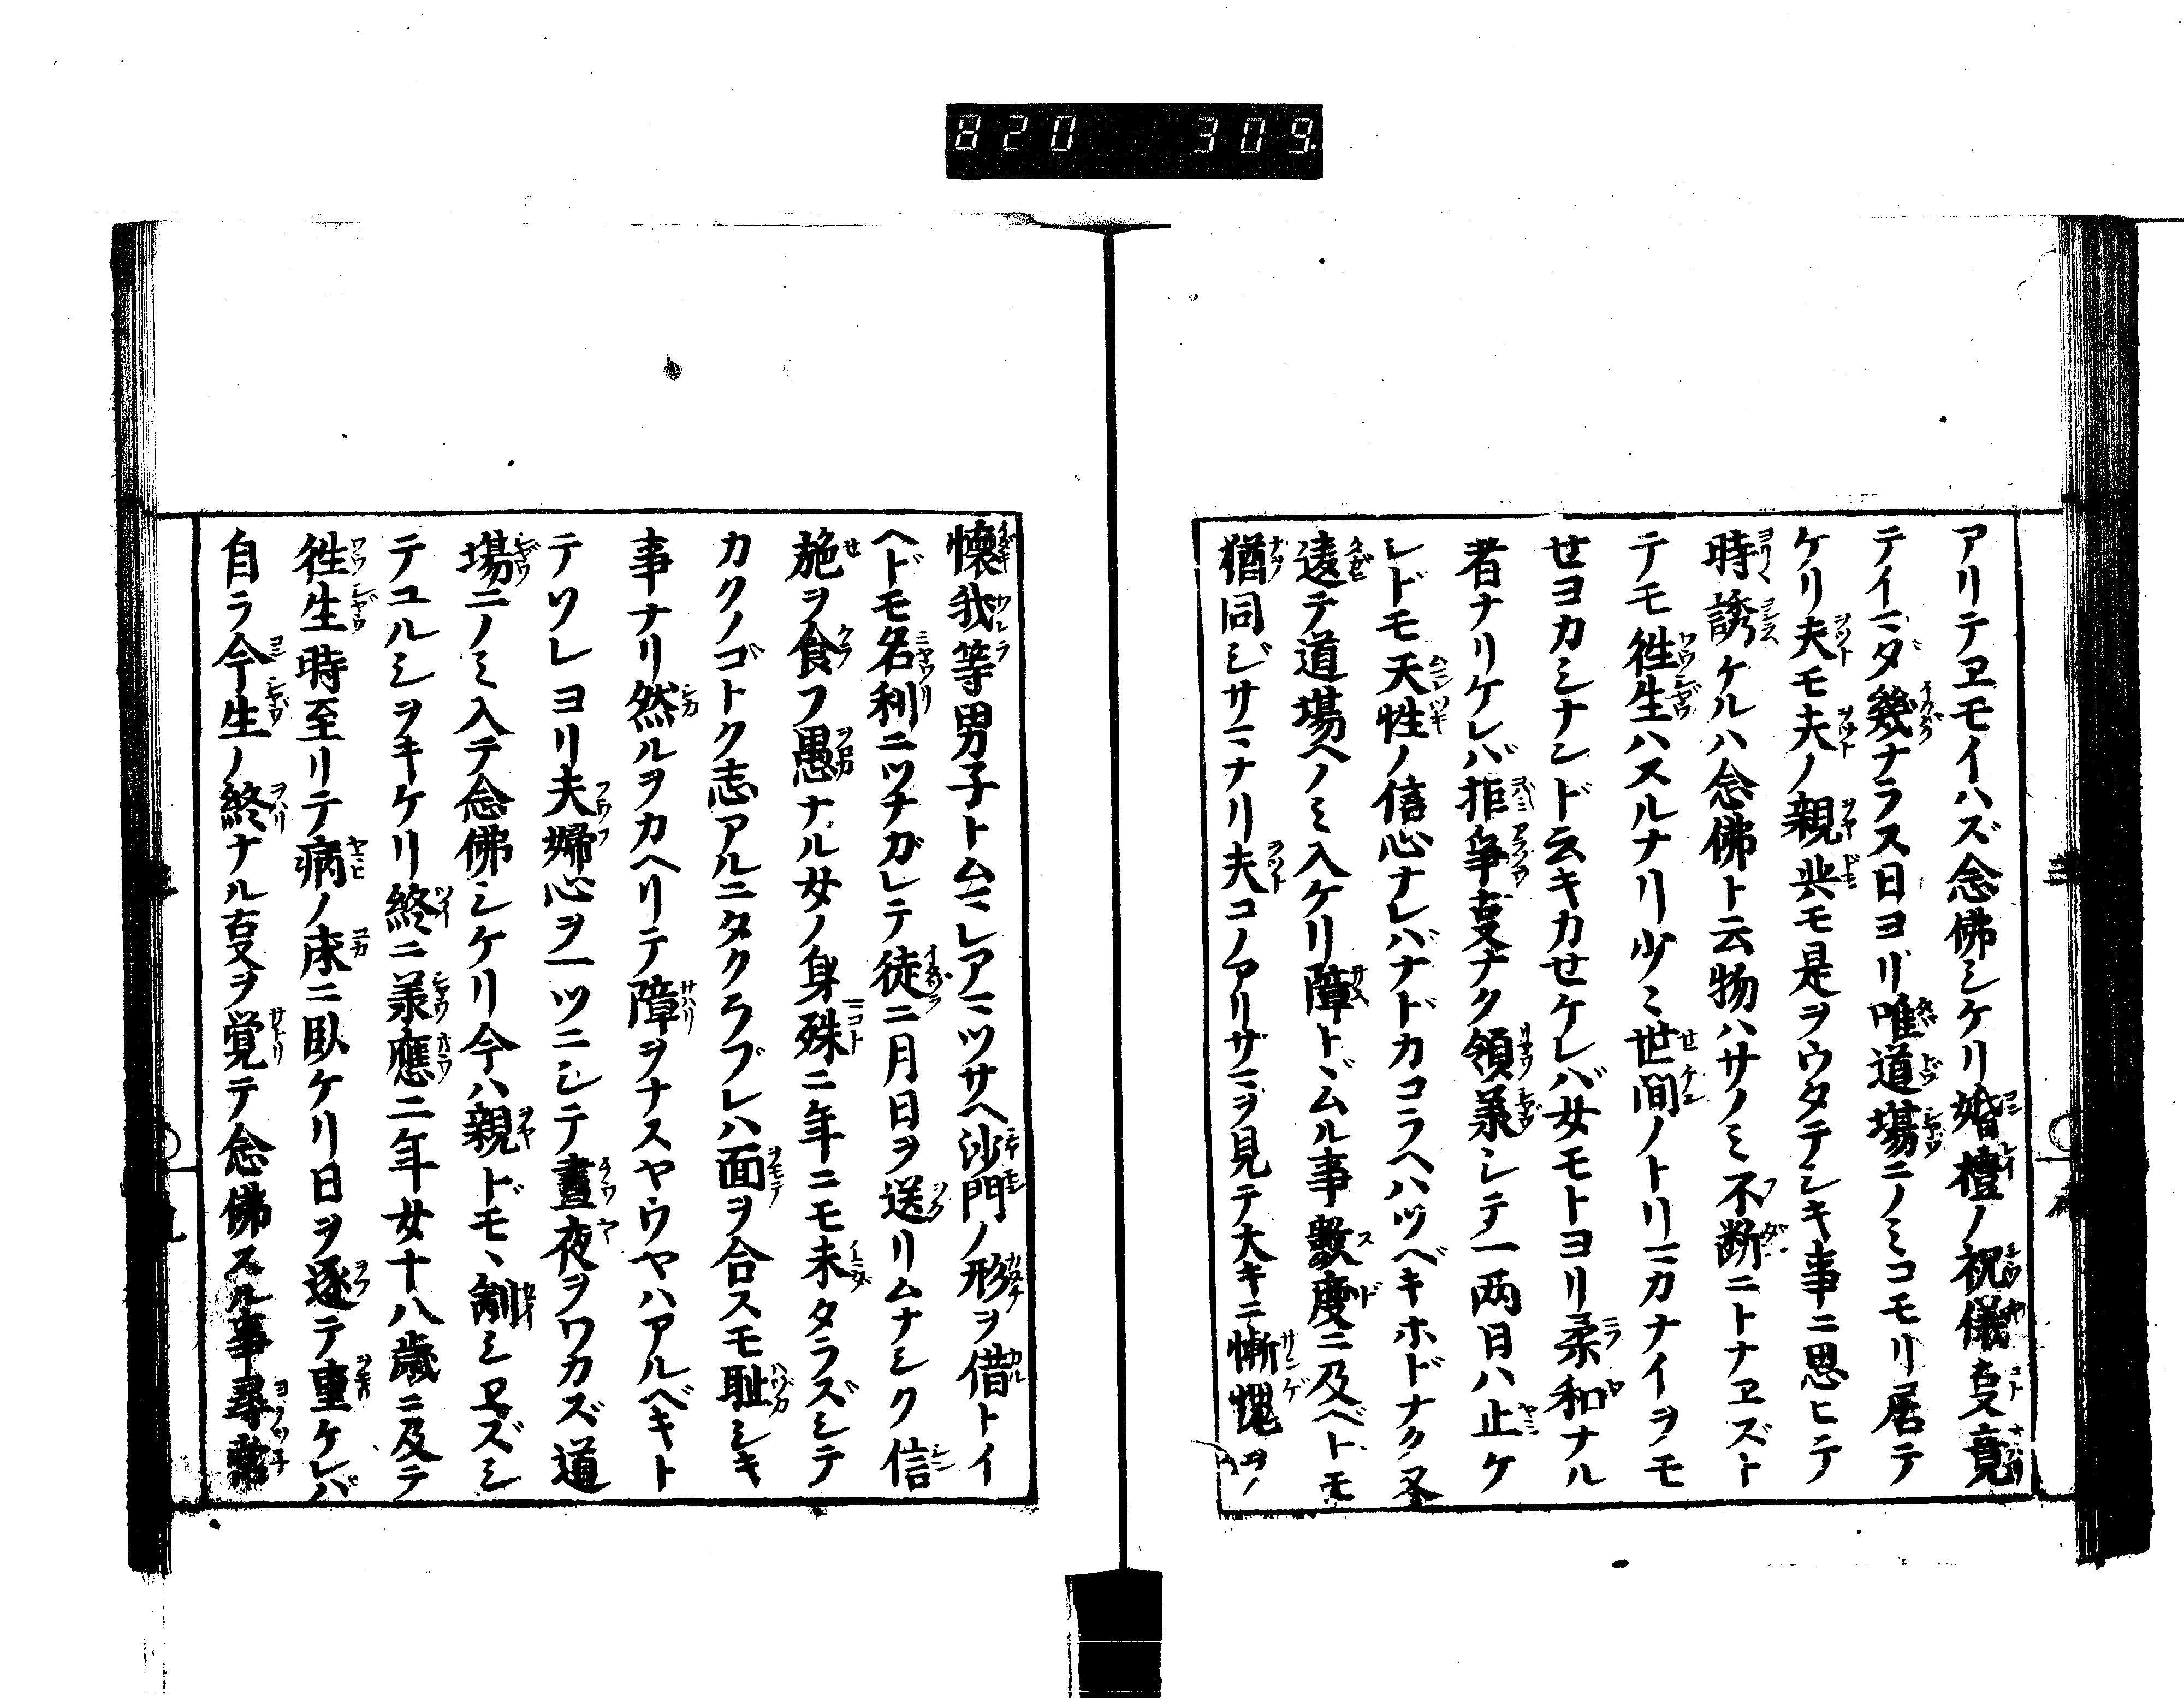 820 309
アリテヱモイハズ念佛シケリ婚禮ノ祝儀事竟
テイマダ幾ナラス日ヨリ唯道場ニノミコモリ居テ
ケリ夫モ夫ノ親共モ是ヲウタテシキ事ニ思ヒテ
時〻誘ケルハ念佛ト云物ハサノミ不断ニトナヱズト
テモ徃生ハスルナリ少〻世間ノトリマカナイヲモ
せヨカシナンド云キカせケレバ女モトヨリ柔和ナル
者ナリケレバ拒爭事ナク領掌シテ一两日ハ止ケ
レドモ天性ノ信心ナレバナドカコラヘハツベキホドナク又
違テ道場ヘノミ入ケリ障トヾムル事數度ニ及ベトモ
猶同ジサマナリ夫コノアリサマヲ見テ大キニ慚愧ヲ
懷我等男子トムマレアマツサヘ沙門ノ形ヲ借トイ
ヘドモ名利ニツナガレテ徒ニ月日ヲ送リムナシク信
施ヲ食フ愚ナル女ノ身殊ニ年ニモ未タラズシテ
カクノゴトク志アルニタクラブレハ面ヲ合スモ耻シキ
事ナリ然ルヲカヘリテ障ヲナスヤウヤハアルベキト
テソレヨリ夫婦心ヲ一ツニシテ晝夜ヲワカズ道
場ニノミ入テ念佛シケリ今ハ親ドモ〻制シヱズシ
テユルシヲキケリ終ニ承應二年女十八歳ニ及テ
徃生時至リテ病ノ床ニ臥ケリ日ヲ逐テ重ケレバ
自ラ今生ノ終ナル事ヲ覚テ念佛スル事尋常